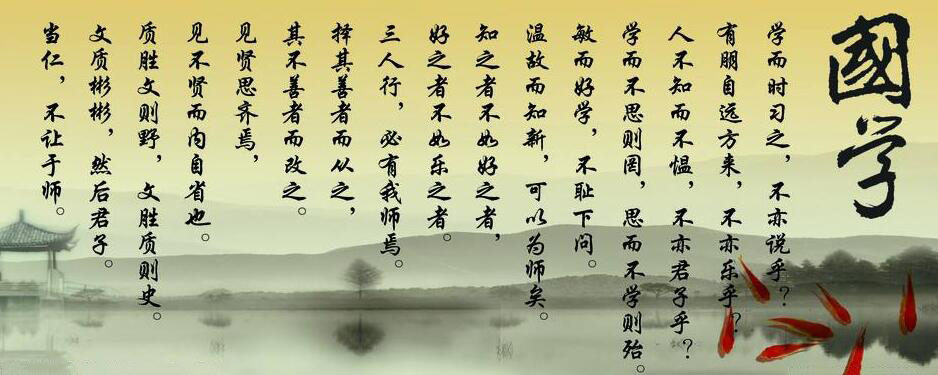 國学
学而时习之，不亦说乎？
有朋自远方来，不亦乐乎？
人不知而不愠，不亦君子乎？
学而不思则罔，思而不学则殆。
敏而好学，不耻下问。
温故而知新，可以为师矣。
知之者不如好之者，
好之者不如乐之者。
三人行，必有我师焉。
择其善者而从之，
其不善者而改之。
见贤思齐焉，
见不贤而内自省也。
质胜文则野，文胜质则史。
文质彬彬，然后君子。
当仁，不让于师。